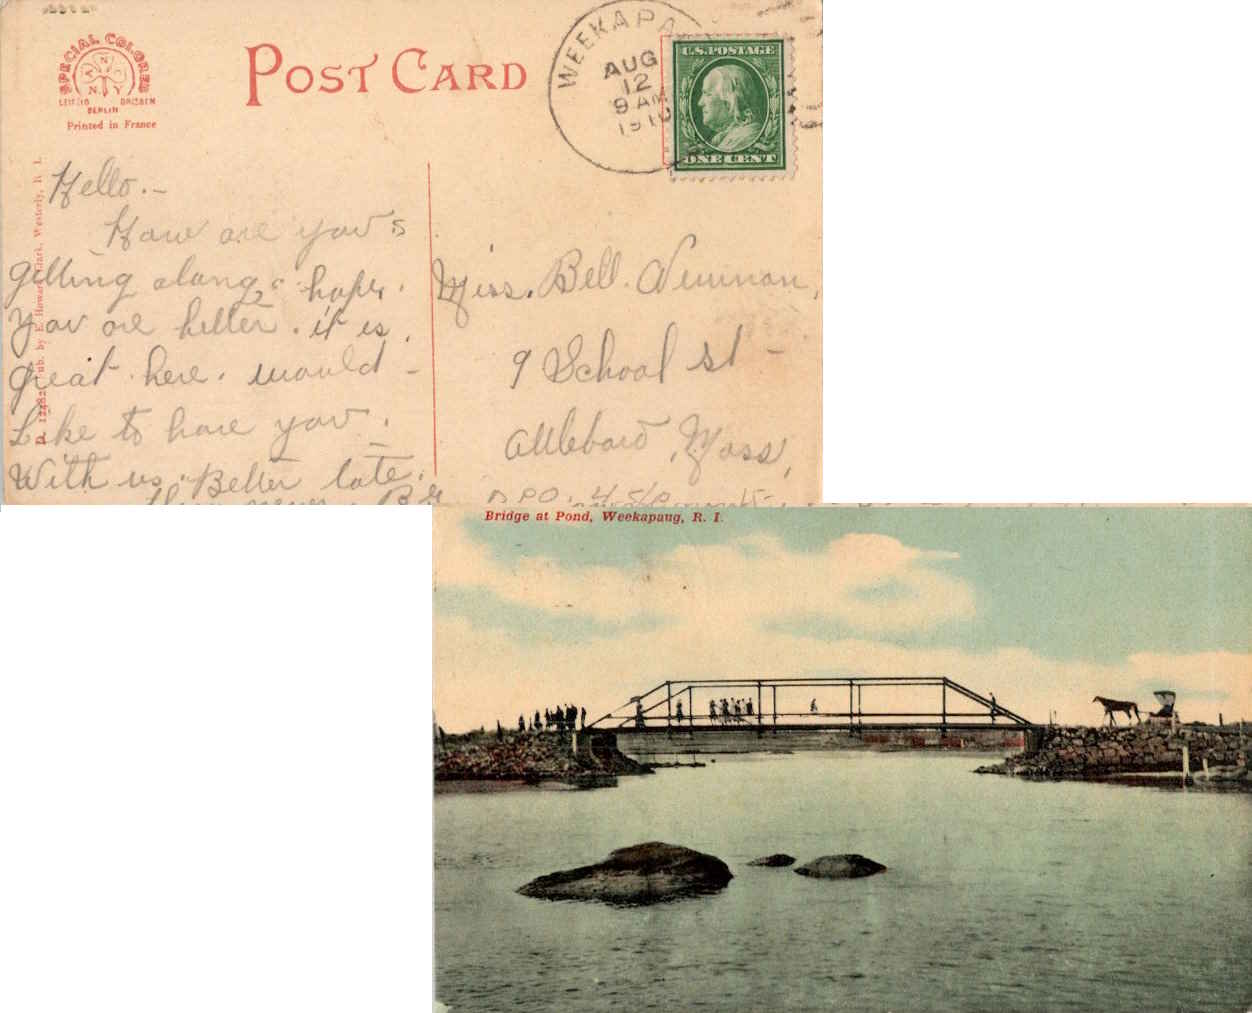 SPECIAL COLORED
A N C
N Y
LEIPZIG DRESDEN
BERLIN
Printed in France
POST CARD
WEEKAPA
AUG
12
9 AM
1910
U.S. POSTAGE
ONE CENT
D. 12482 Pub. by E. Howard Clark, Westerly, R. I.
Hello.-
How are you
getting along hope
You are better. it is.
great here. would -
Like to have you.
With us. Better late.
than never
Miss. Bell. Newman,
9 School st -
Attleboro, Mass,
Bridge at Pond, Weekapaug, R. I.